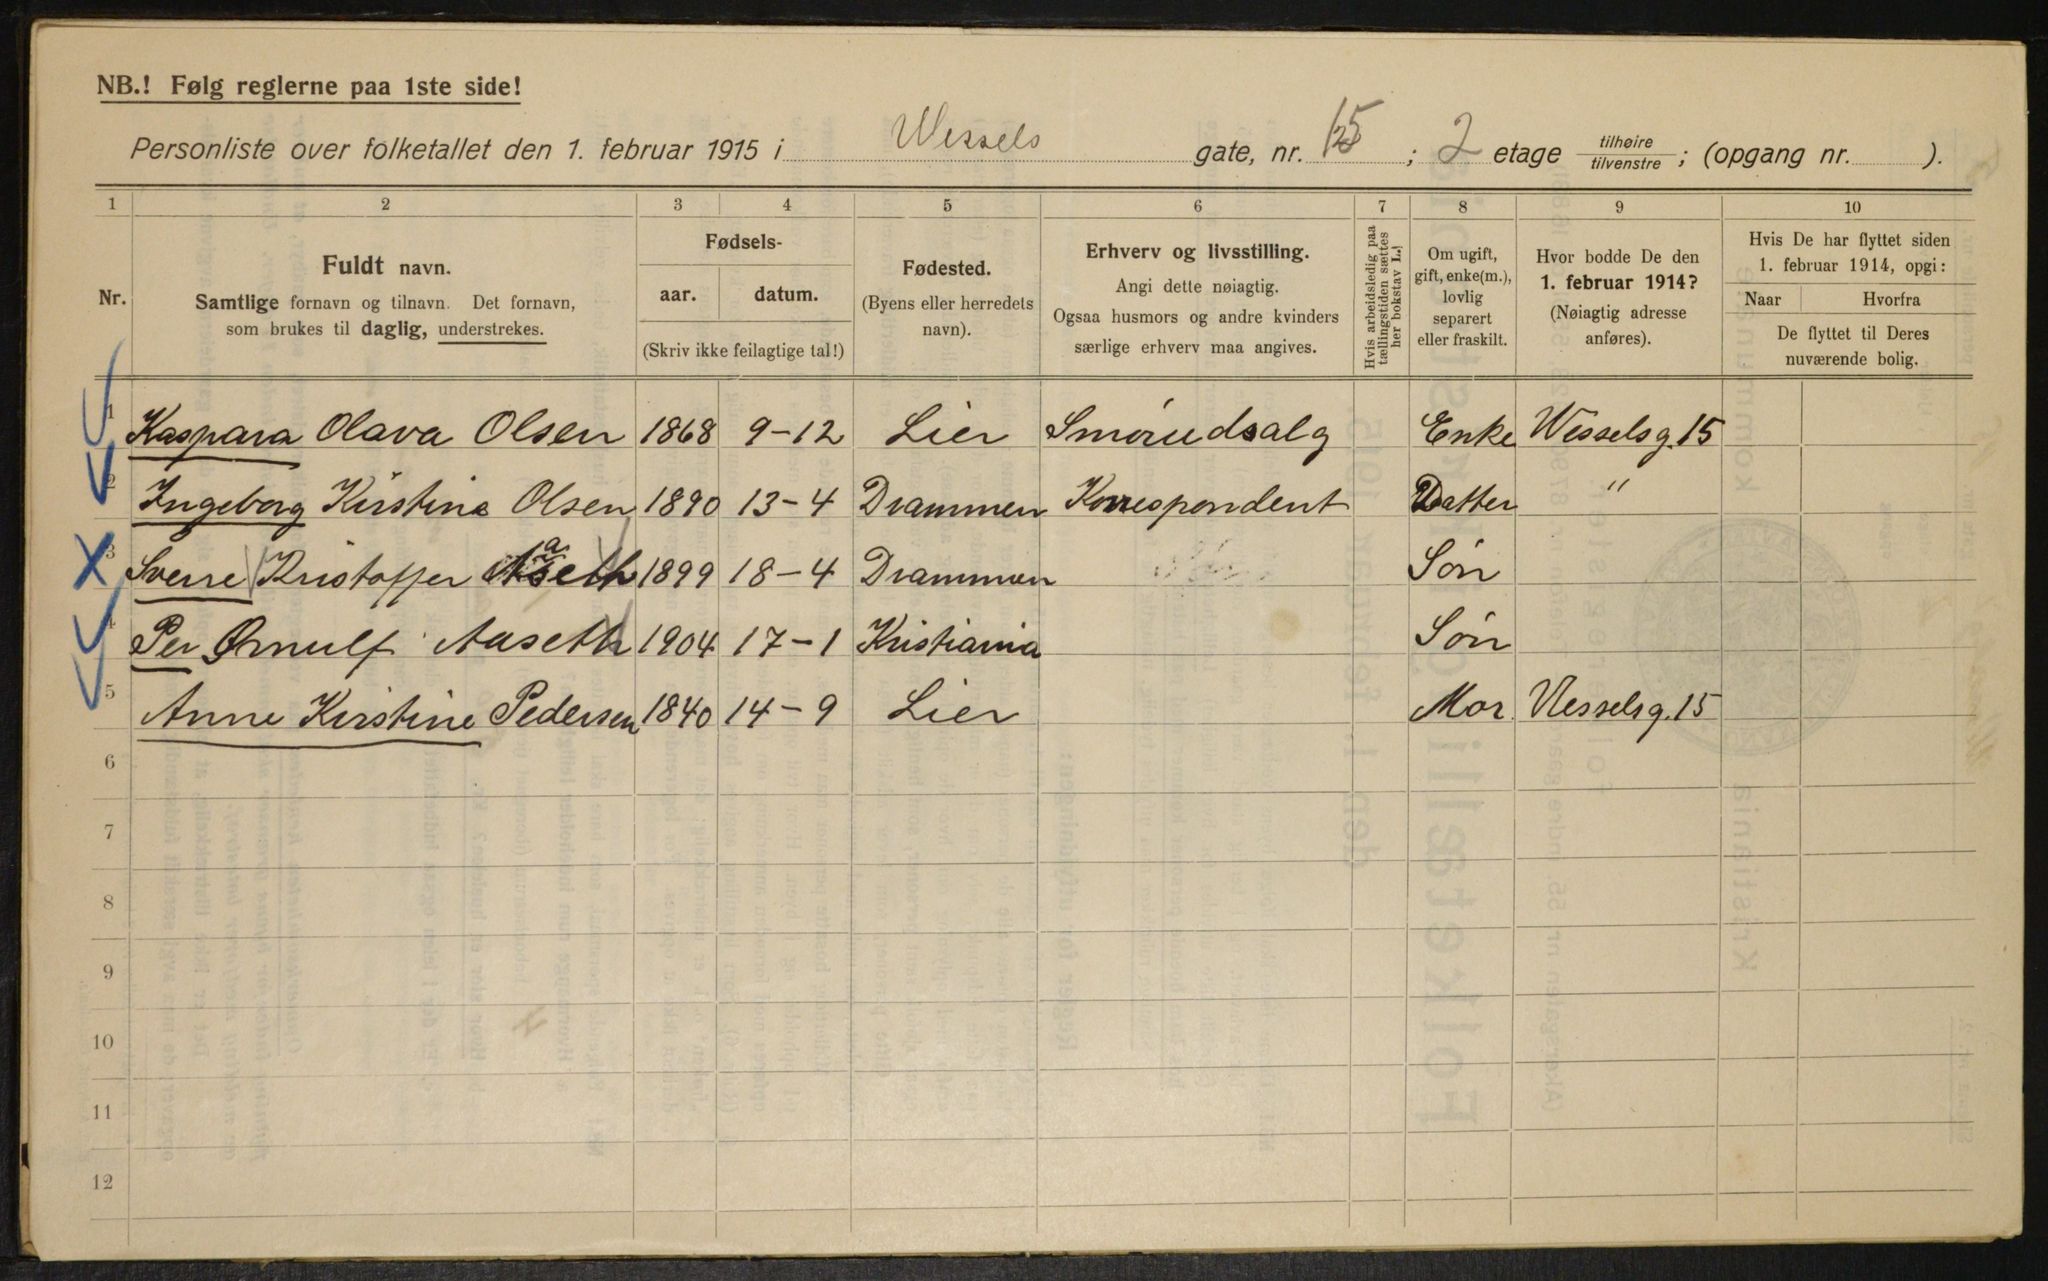 NB.! Følg reglerne paa 1ste side!
Personliste over folketallet den 1. februar 1915 i Wessels gate, nr. 15; 2 etage tilhøire tilvenstre; (opgang nr. ).
1 2 3 4 5 6 7 8 9 10
Nr.
Fuldt navn.
Samtlige fornavn og tilnavn. Det fornavn,
som brukes til daglig, understrekes.
Fødsels-
aar. datum.
(Skriv ikke feilagtige tal!)
Fødested.
(Byens eller herredets
navn).
Erhverv og livsstilling.
Angi dette nøiagtig.
Ogsaa husmors og andre kvinders
særlige erhverv maa angives.
Hvis arbeidsledig paa
tællingstiden sættes
her bokstav L.!
Om ugift,
gift, enke(m.),
lovlig
separert
eller fraskilt.
Hvor bodde De den
1. februar 1914?
(Nøiagtig adresse
anføres).
Hvis De har flyttet siden
1. februar 1914, opgi:
Naar Hvorfra
De flyttet til Deres
nuværende bolig.
1 Kaspara Olava Olsen 1868 9-12 Lier Enke Wesselsg. 15
2 Ingeborg Kirstine Olsen 1890 13-4 Drammen Korrespondent Datter "
3 Sverre Kristoffer Aaseth 1899 18-4 Drammen Søn
4 Per Ørnulf Aaseth 1904 17-1 Kristiania Søn
5 Anne Kirstine Pedersen 1840 14-9 Lier Mor Wesselsg. 15
6
7
8
9
10
11
12